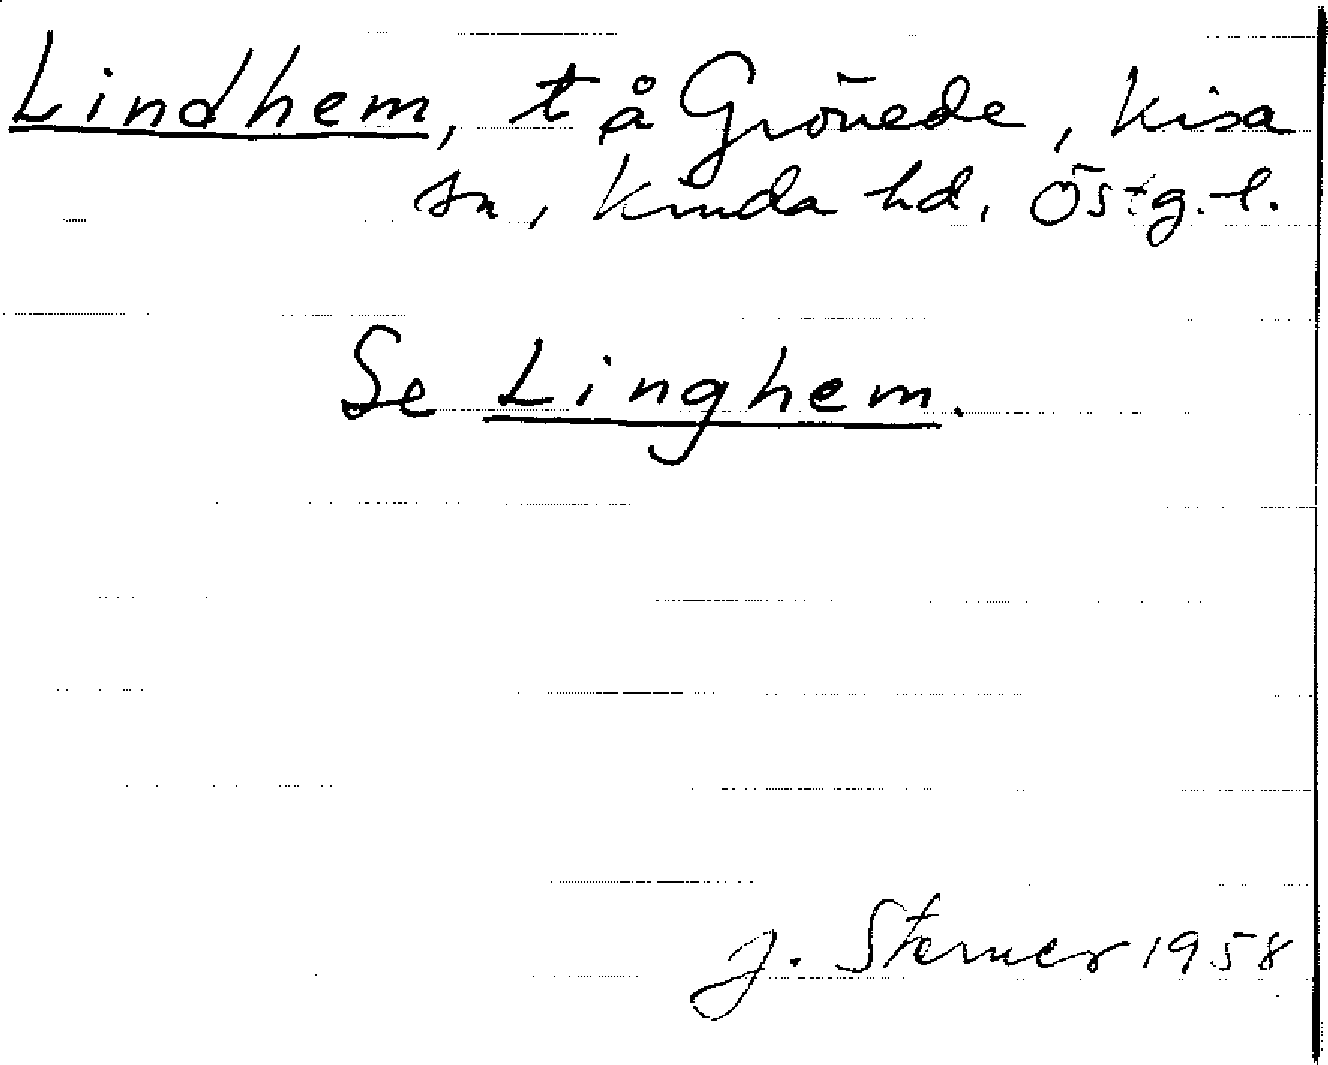 Lindhem, t å Grönede, Kisa
sn, Kinda hd, Östg. l.
Se Linghem.
J. Sterner 1958